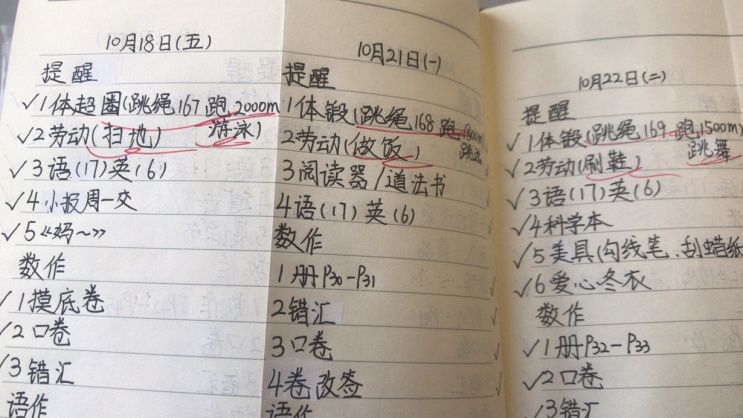 10月18日(五)
提醒
✓1体超圈(跳绳167跑2000m
游泳)
✓2劳动(扫地)
✓3语(17)英(6)
✓4小报周一交
✓5《妈~》
数作
✓1摸底卷
✓2口卷
✓3错汇
语作
10月21日(一)
提醒
1体锻(跳绳168跑
2劳动(做饭)
3阅读器/道法书
4语(17)英(6)
数作
1册P30-P31
2错汇
3口卷
4卷改签
语作
10月22日(二)
提醒
✓1体锻(跳绳169跑1500m)
跳舞
✓2劳动(刷鞋)
✓3语(17)英(6)
✓4科学本
✓5美具(勾线笔、刮蜡纸
✓6爱心冬衣
数作
✓1册P32-P33
✓2口卷
✓3错汇